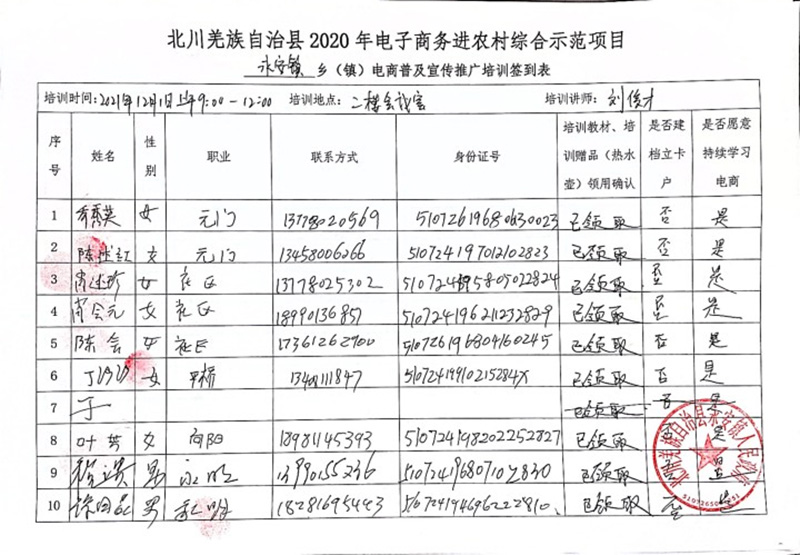 北川羌族自治县2020年电子商务进农村综合示范项目
永安镇 乡（镇）电商普及宣传推广培训签到表
培训时间:2021年12月1日上午9:00-12:00 培训地点: 二楼会议室 培训讲师: 刘俊才
序号 姓名 性别 职业 联系方式 身份证号 培训教材、培训赠品（热水壶）领用确认 是否建档立卡户 是否愿意持续学习电商
1 女 元门 13778020569 510726196806130023 已领取 否 是
2 女 元门 13458006266 510724197012102823 已领取 否 是
3 女 社区 13778025302 510724195805022824 已领取 否 是
4 肖会元 女 社区 18990136857 510724196211232829 已领取 否 是
5 陈会 女 社区 17361262900 510726196804160245 已领取 否 是
6 女 13409111847 51072419910215284X 已领取 否 是
7 已领取 否 是
8 叶芳 女 向阳 18981145393 510724198202252827 已领取 是
9 男 永明 13990155236 已领取 是
10 男 永明 已领取 否 是
北川羌族自治县永安镇人民政府